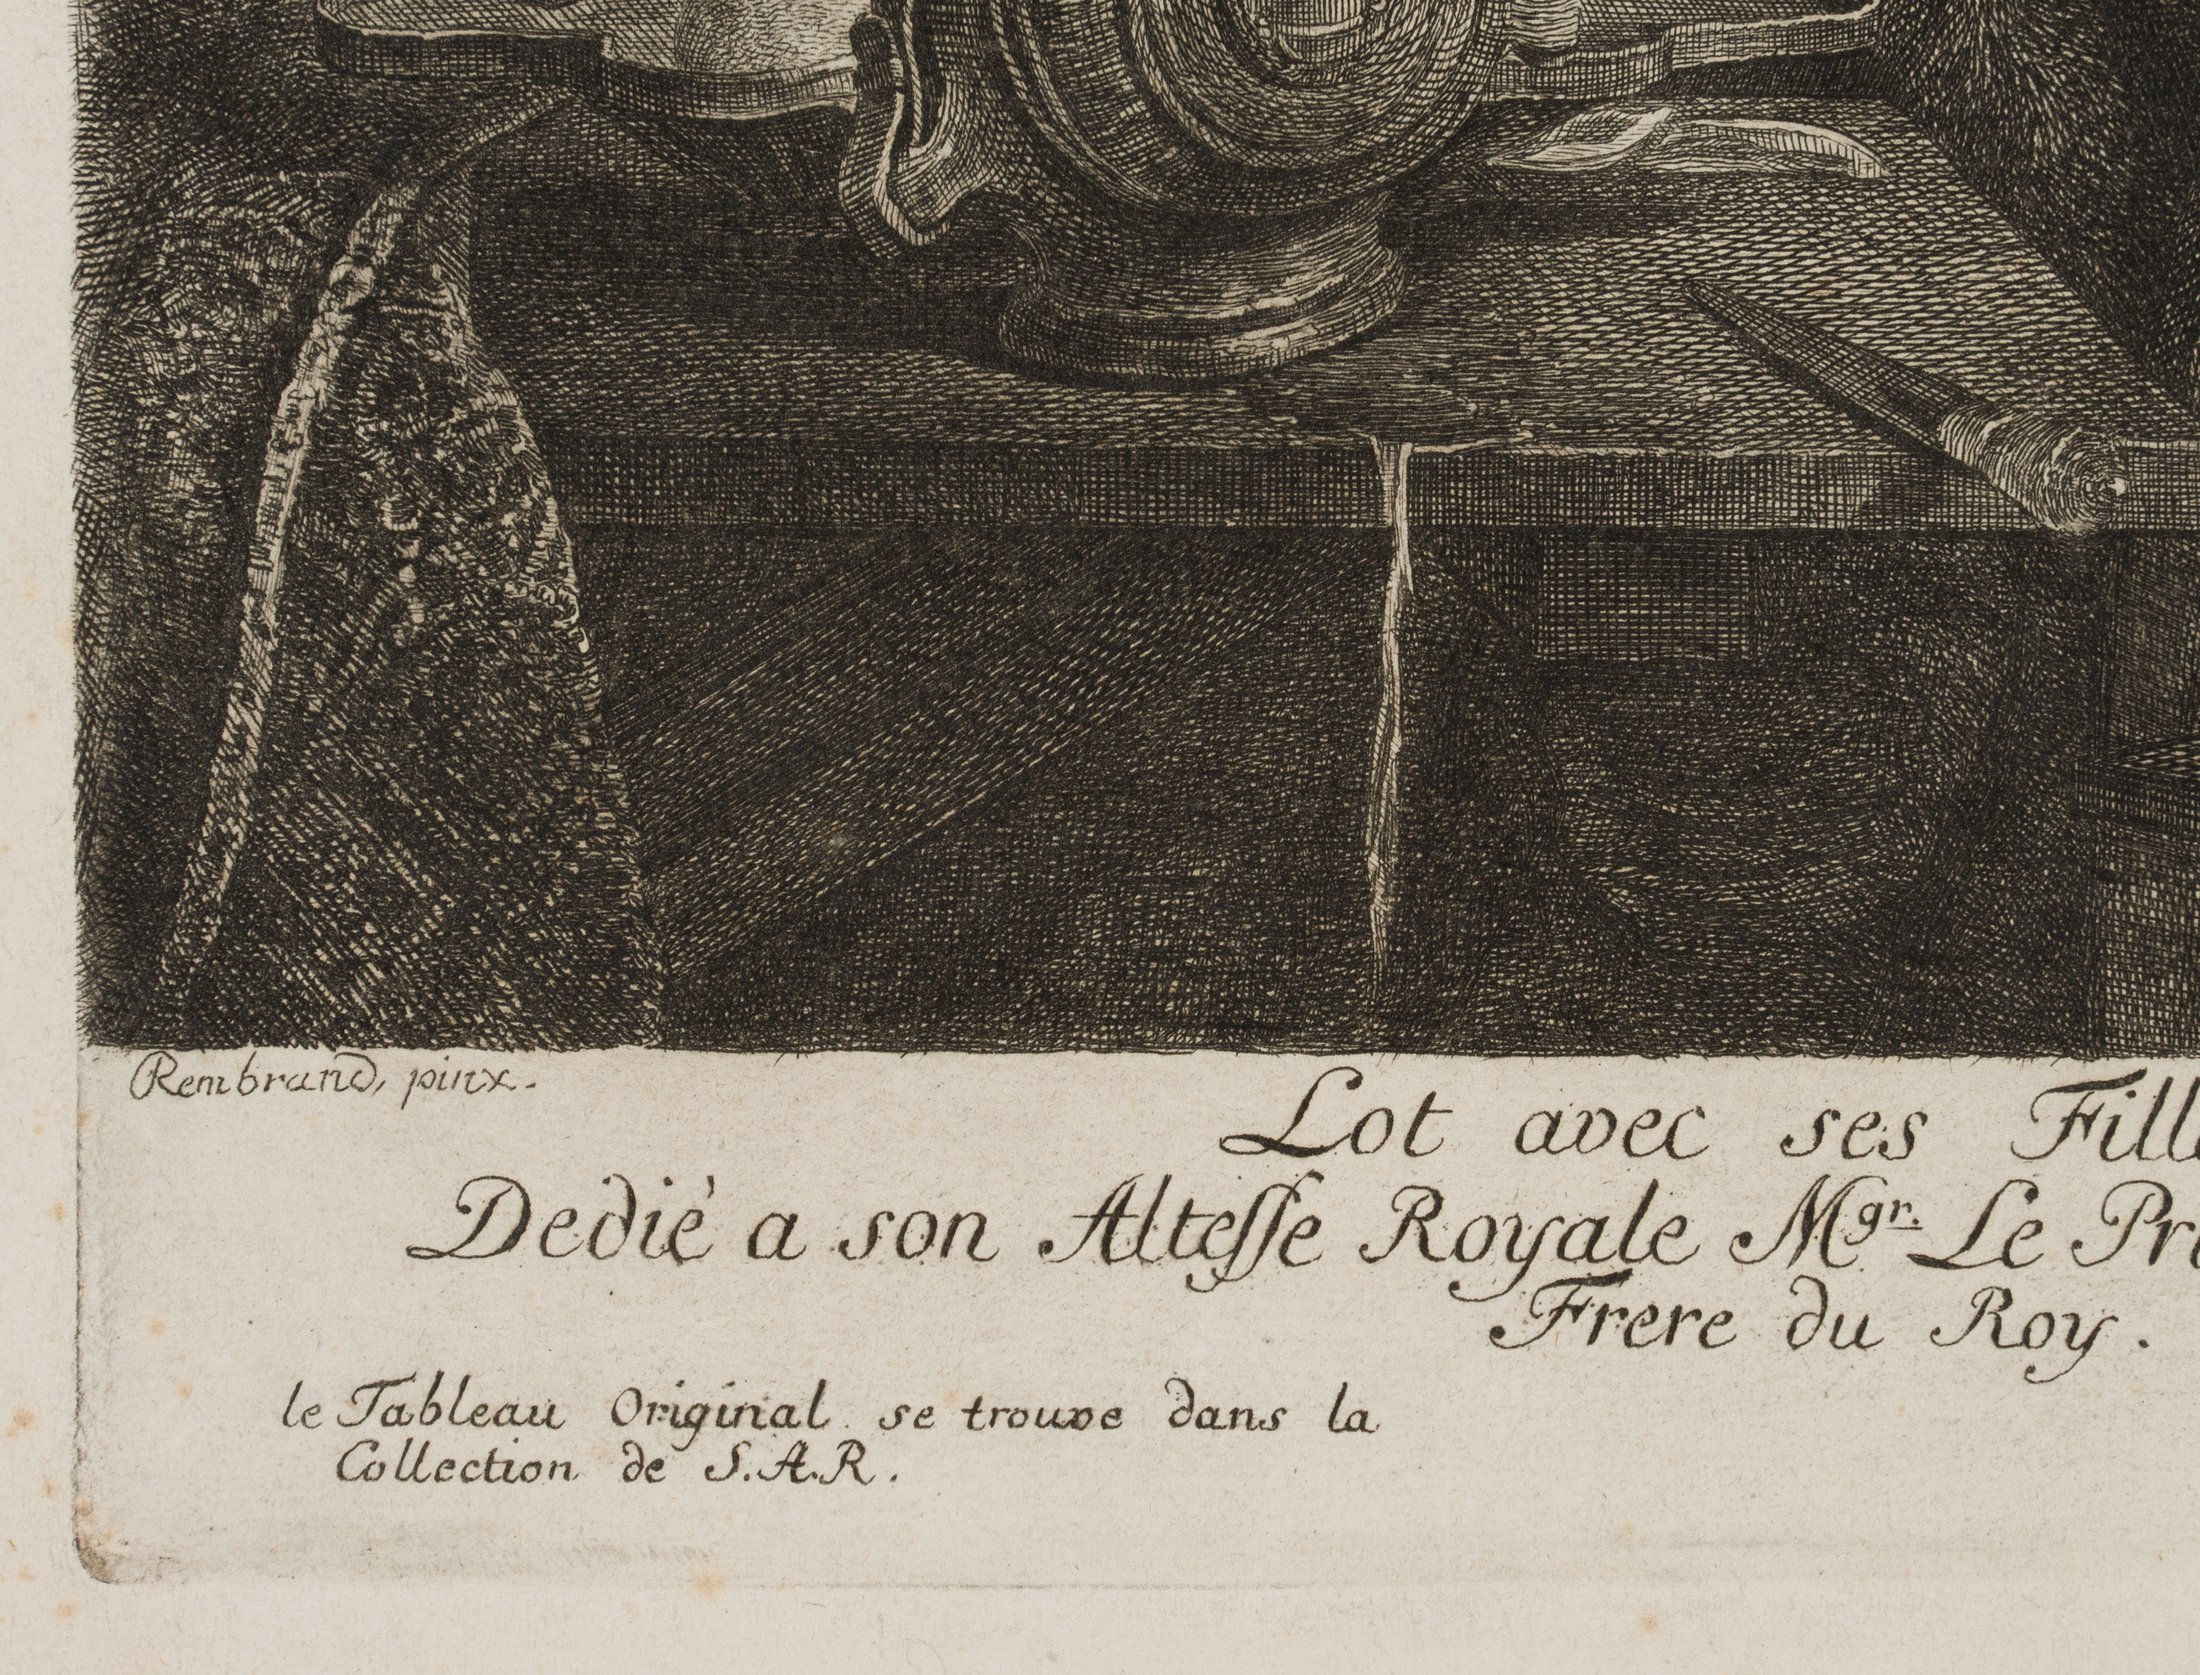 Rembrand, pinx.
Lot avec ses Fill
Dedié a son Altesse Royale Mgr. Le Pri
Frere du Roy.
le Tableau Original se trouve dans la
Collection de S.A.R.